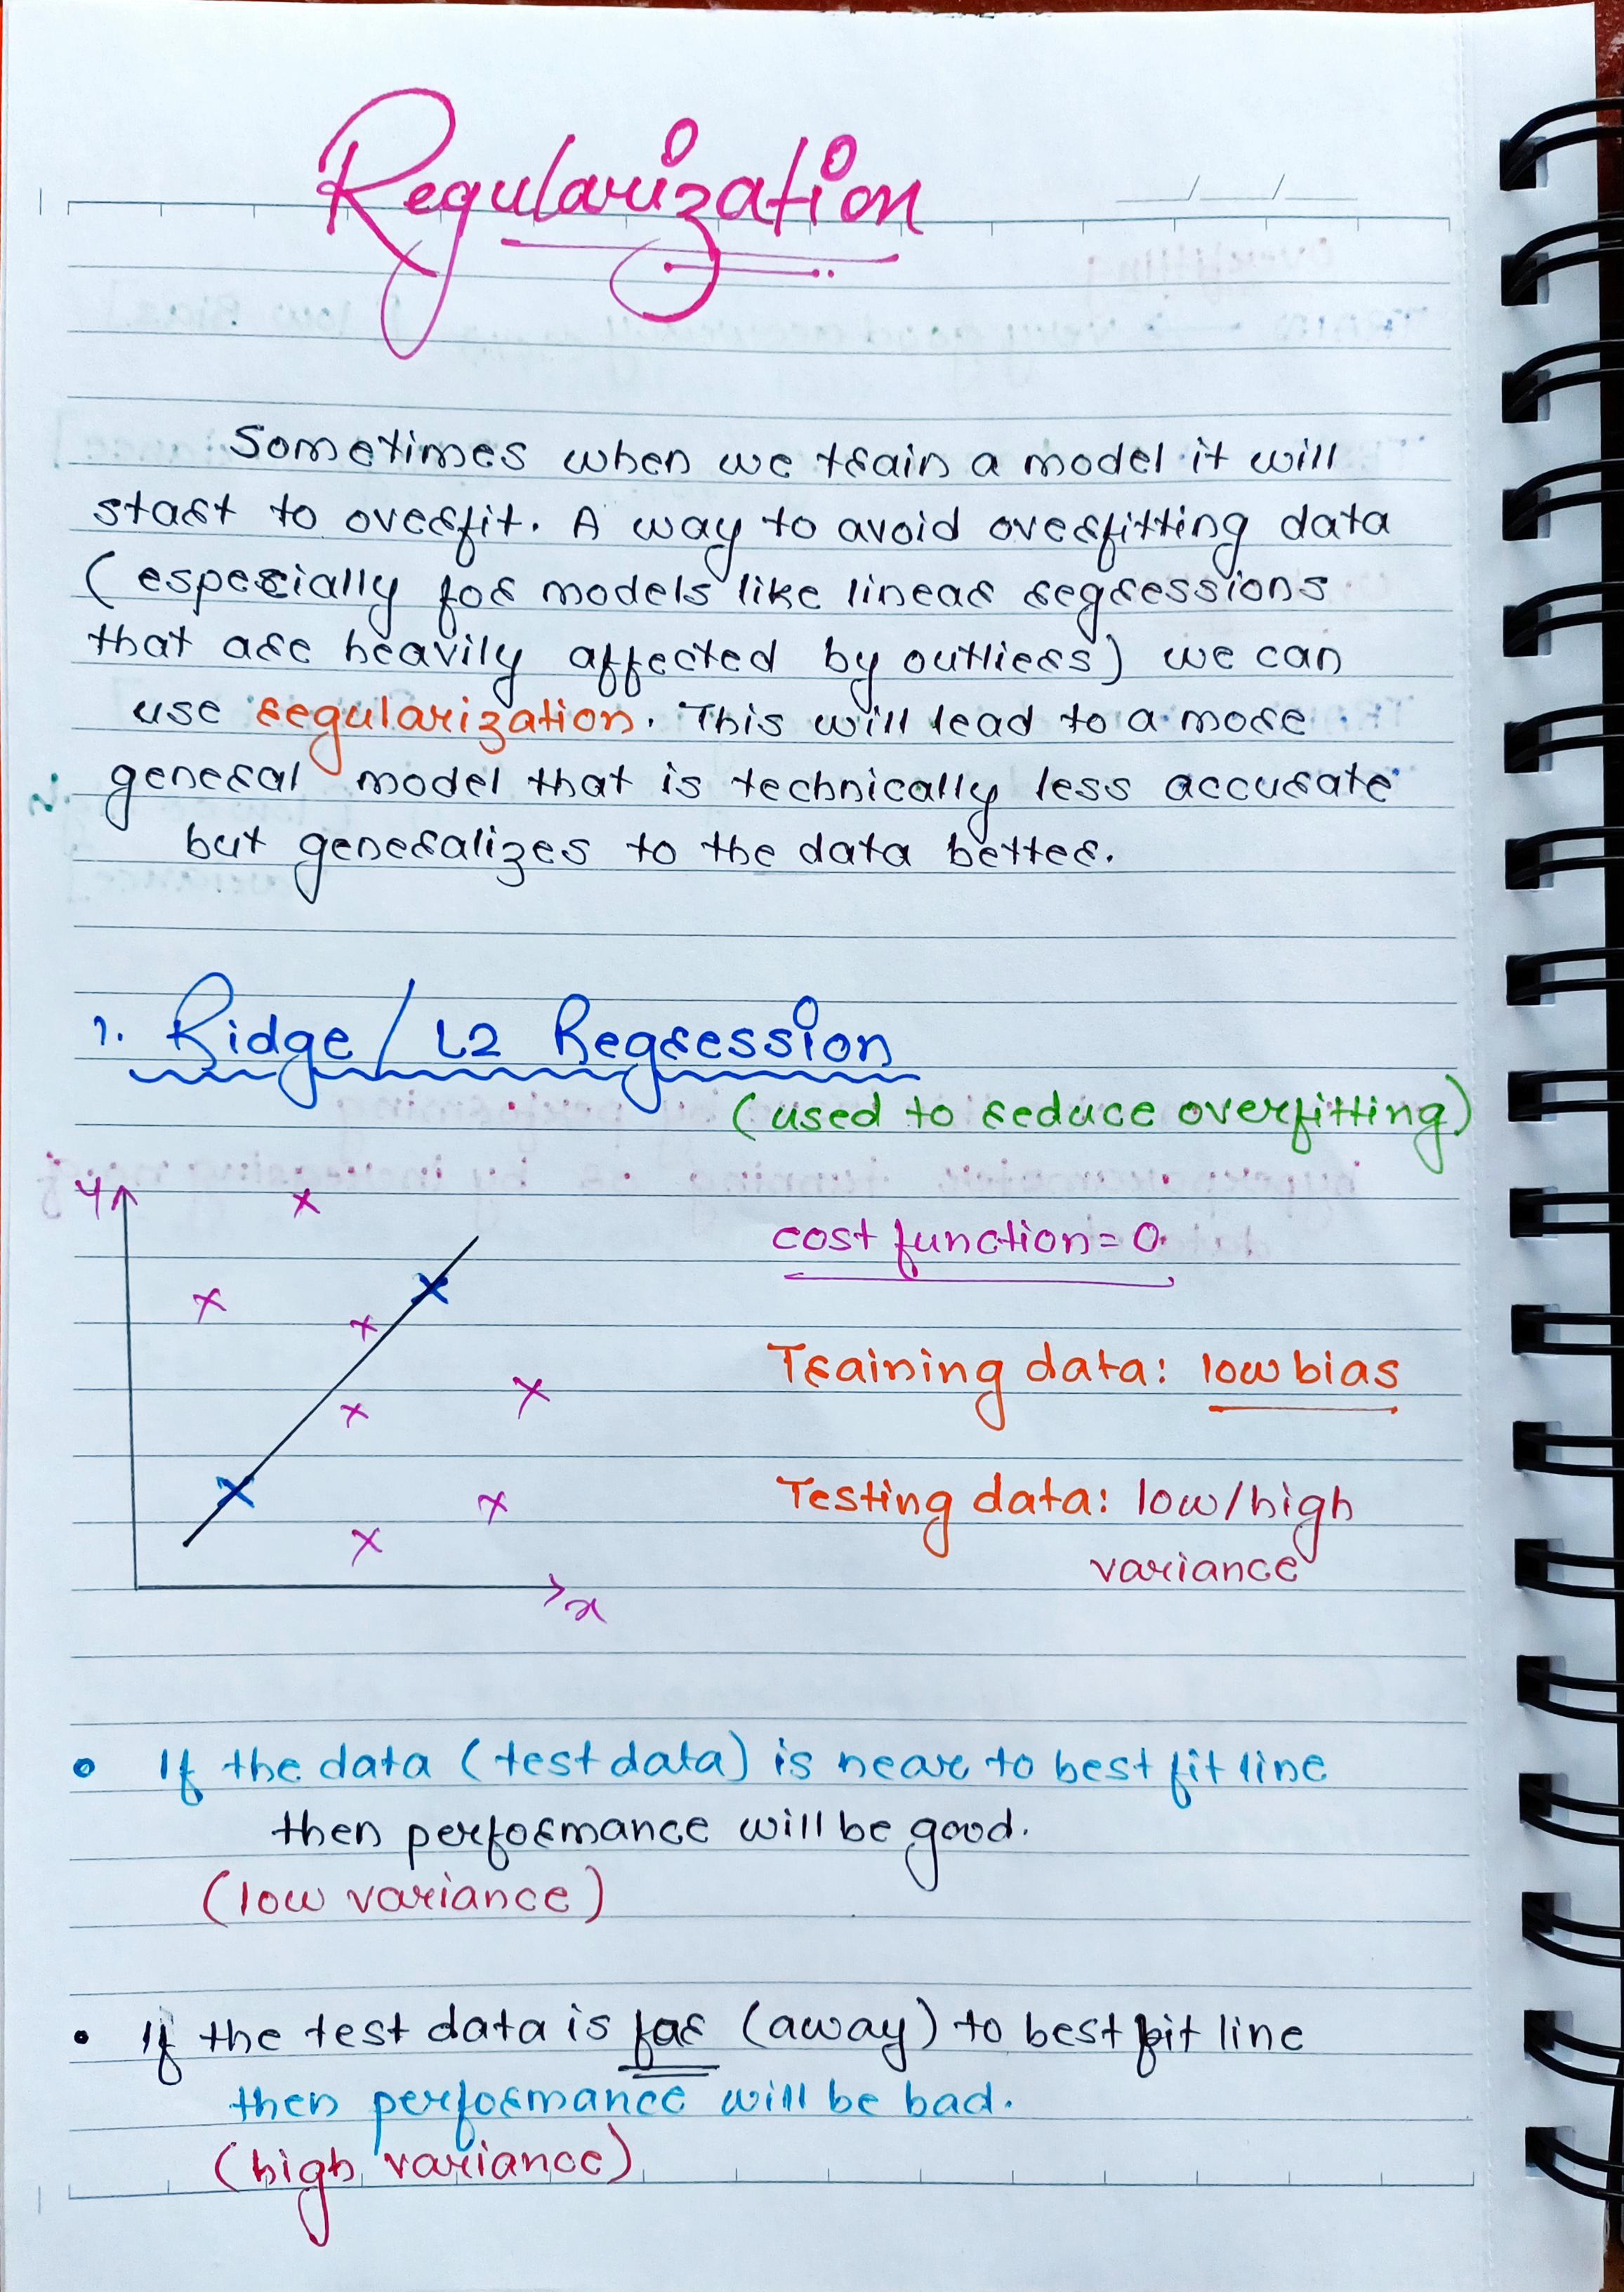 Regularization
Sometimes when we train a model it will
start to overfit. A way to avoid overfitting data
(especially for models like linear regressions
that are heavily affected by outliers) we can
use regularization. This will lead to a more
general model that is technically less accurate
but generalizes to the data better.
1. Ridge / L2 Regression
(used to reduce overfitting)
y
cost function = 0
Training data: low bias
Testing data: low/high
variance
x
• If the data (test data) is near to best fit line
then performance will be good.
(low variance)
• If the test data is far (away) to best fit line
then performance will be bad.
(high variance)